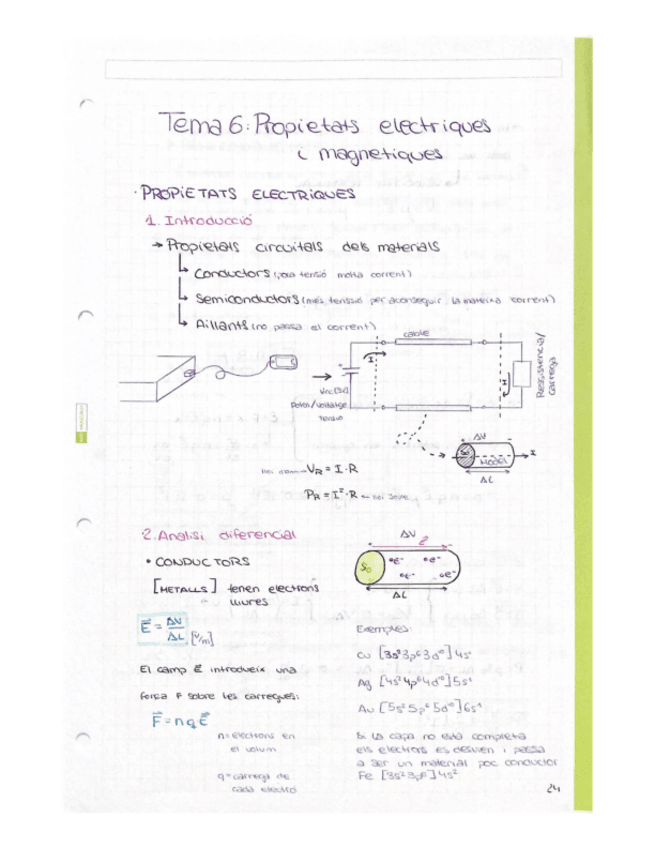 Tema 6: Propietats electriques
i magnetiques
· PROPIETATS ELECTRIQUES
1. Introducció
→ Propietats circuitals dels materials
↳ Conductors (poca tensió molta corrent)
↳ Semiconductors (més tenssió per aconseguir la mateixa corrent)
↳ Aillants (no passa el corrent)
cable
I
Resistencia/
carrega
I
Potot/voltatge
tensio
ΔV
I
MODEL
ΔL
llei ohm → VR = I · R
PR = I² · R ← llei Joule
2. Analisi diferencial
• CONDUCTORS
[METALLS] tenen electrons
lliures
E = ΔV
ΔL [V/m]
El camp E introdueix una
força F sobre les carregues:
F = n q E
n = electrons en
el volum
q = carrega de
cada electró
ΔV
E
S₀ •e⁻ •e⁻
•e⁻ •e⁻
ΔL
Exemples:
Cu [3s²3p⁶3d¹⁰] 4s¹
Ag [4s²4p⁶4d¹⁰] 5s¹
Au [5s²5p⁶5d¹⁰] 6s¹
Si la capa no està completa
els electrons es desvien i passa
a ser un material poc conductor
Fe [3s²3p⁶] 4s²
24